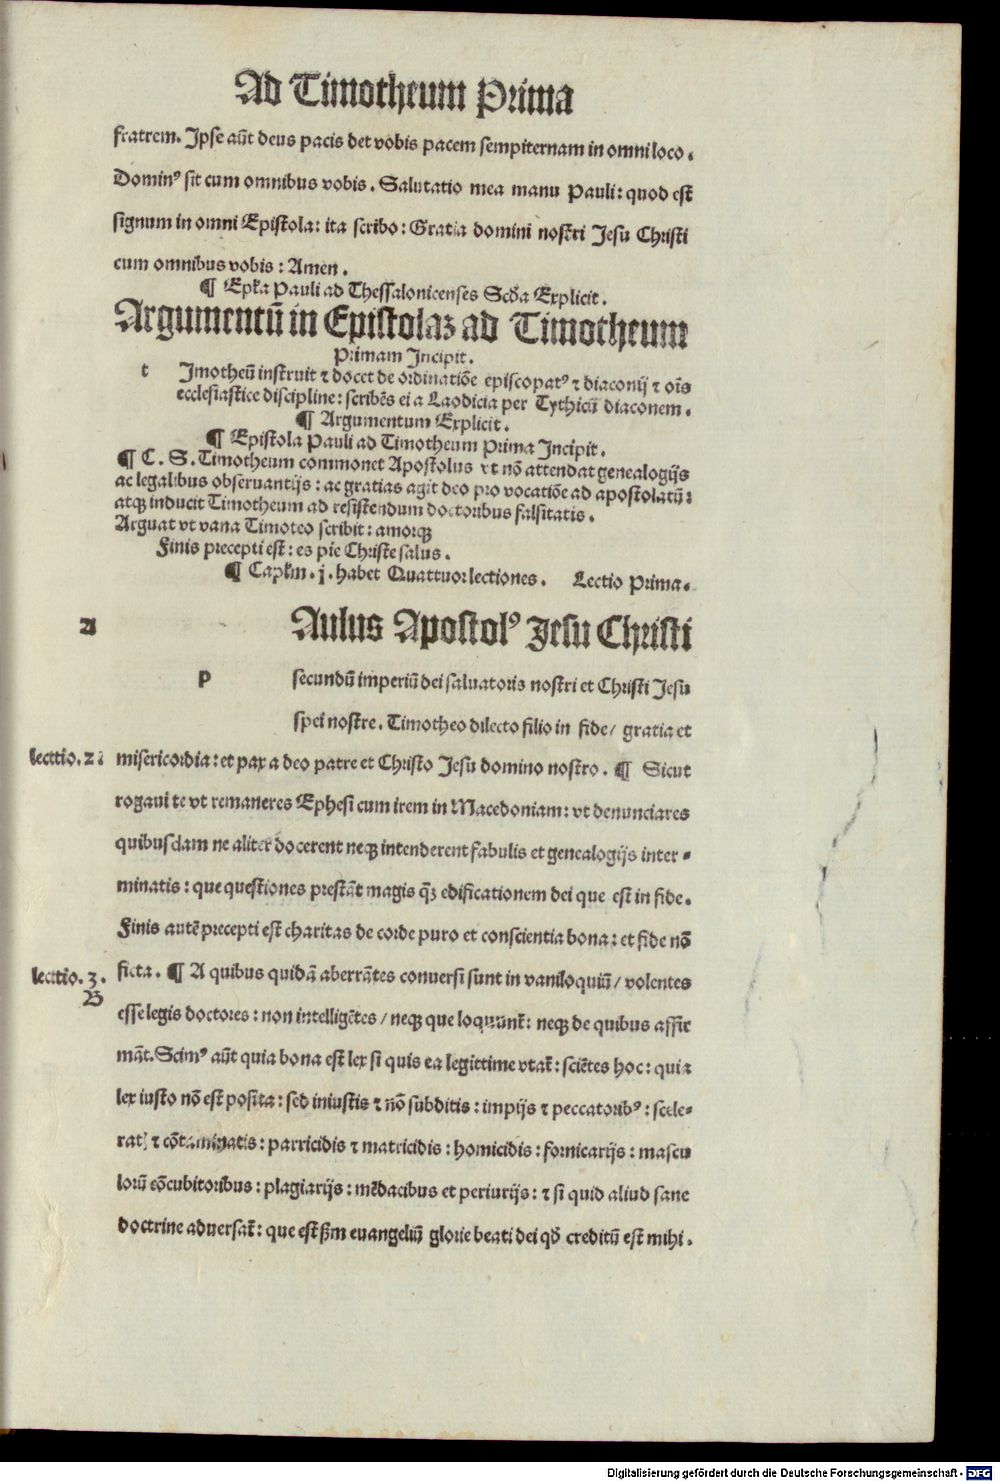 Ad Timotheum Prima
fratrem. Ipse aūt deus pacis det vobis pacem sempiternam in omni loco.
Dominꝰ sit cum omnibus vobis. Salutatio mea manu Pauli: quod est
signum in omni Epistola: ita scribo: Gratia domini nostri Jesu Christi
cum omnibus vobis: Amen.
¶ Epłla Pauli ad Thessalonicenses Scđa Explicit.
Argumentū in Epistolaꝫ ad Timotheum
Primam Incipit.
t Imotheū instruit ⁊ docet de ordinatiōe episcopatꝰ ⁊ diaconij ⁊ oīs
ecclesiastice discipline: scribēs ei a Laodicia per Tythicū diaconem.
¶ Argumentum Explicit.
¶ Epistola Pauli ad Timotheum Prima Incipit.
¶ C. S. Timotheum commonet Apostolus vt nō attendat genealogijs
ac legalibus obseruantijs: ac gratias agit deo pro vocatiōe ad apostolatū:
atqꝫ inducit Timotheum ad resistendum doctoribus falsitatis.
Arguat vt vana Timoteo scribit: amorqꝫ
Finis precepti est: es pie Christe salus.
¶ Capłm. j. habet Quattuor lectiones. Lectio Prima.
A
Aulus Apostolꝰ Jesu Christi
p secundū imperiū dei saluatoris nostri et Christi Jesu
spei nostre. Timotheo dilecto filio in fide/ gratia et
lecttio. 2: misericordia: et pax a deo patre et Christo Jesu domino nostro. ¶ Sicut
rogaui te vt remaneres Ephesi cum irem in Macedoniam: vt denunciares
quibusdam ne aliter docerent neqꝫ intenderent fabulis et genealogijs inter-
minatis: que questiones prestāt magis qꝫ̄ edificationem dei que est in fide.
Finis autē precepti est charitas de corde puro et conscientia bona: et fide nō
lecttio. 3. ficta. ¶ A quibus quidā aberrātes conuersi sunt in vaniloquiū/ volentes
B
esse legis doctores: non intelligētes/ neqꝫ que loquunt᷑: neqꝫ de quibus affir
māt. Scimꝰ aūt quia bona est lex si quis ea legittime vtat᷑: sciētes hoc: quia
lex iusto nō est posita: sed iniustis ⁊ nō subditis: impijs ⁊ peccatoribꝰ: scele-
ratꝭ ⁊ cōtaminatis: parricidis ⁊ matricidis: homicidis: fornicarijs: mascu
lorū cōcubitoribus: plagiarijs: mēdacibus et periurijs: ⁊ si quid aliud sane
doctrine aduersat᷑: que est ẜm euangeliū glorie beati dei qđ creditū est mihi.
Digitalisierung gefördert durch die Deutsche Forschungsgemeinschaft - DFG